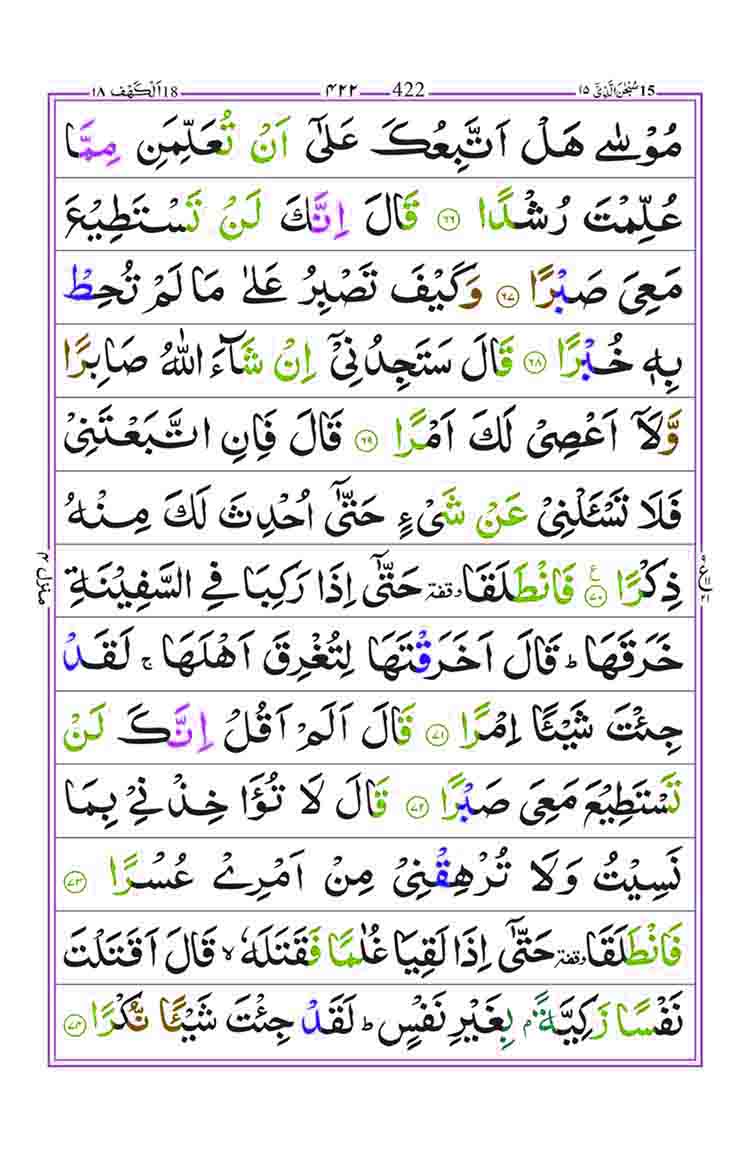 15 سُبْحٰنَ الَّذِیْۤ ۱۵ 422 ۴۲۲ 18 اَلْكَهْف ۱۸
مُوْسٰی هَلْ اَتَّبِعُكَ عَلٰۤی اَنْ تُعَلِّمَنِ مِمَّا
عُلِّمْتَ رُشْدًا ۶۶ قَالَ اِنَّكَ لَنْ تَسْتَطِیْعَ
مَعِیَ صَبْرًا ۶۷ وَكَیْفَ تَصْبِرُ عَلٰی مَا لَمْ تُحِطْ
بِهٖ خُبْرًا ۶۸ قَالَ سَتَجِدُنِیْۤ اِنْ شَآءَ اللّٰهُ صَابِرًا
وَّلَاۤ اَعْصِیْ لَكَ اَمْرًا ۶۹ قَالَ فَاِنِ اتَّبَعْتَنِیْ
فَلَا تَسْـَٔلْنِیْ عَنْ شَیْءٍ حَتّٰۤی اُحْدِثَ لَكَ مِنْهُ
ذِكْرًا ۷۰ ع فَانْطَلَقَا وقفة حَتّٰۤی اِذَا رَكِبَا فِی السَّفِیْنَةِ
خَرَقَهَا ؕ قَالَ اَخَرَقْتَهَا لِتُغْرِقَ اَهْلَهَا ۚ لَقَدْ
جِئْتَ شَیْـًٔا اِمْرًا ۷۱ قَالَ اَلَمْ اَقُلْ اِنَّكَ لَنْ
تَسْتَطِیْعَ مَعِیَ صَبْرًا ۷۲ قَالَ لَا تُؤَاخِذْنِیْ بِمَا
نَسِیْتُ وَلَا تُرْهِقْنِیْ مِنْ اَمْرِیْ عُسْرًا ۷۳
فَانْطَلَقَا وقفة حَتّٰۤی اِذَا لَقِیَا غُلٰمًا فَقَتَلَهٗ ۙ قَالَ اَقَتَلْتَ
نَفْسًا زَكِیَّةًۢ بِغَیْرِ نَفْسٍ ؕ لَقَدْ جِئْتَ شَیْـًٔا نُّكْرًا ۷۴
منزل ۴
ع